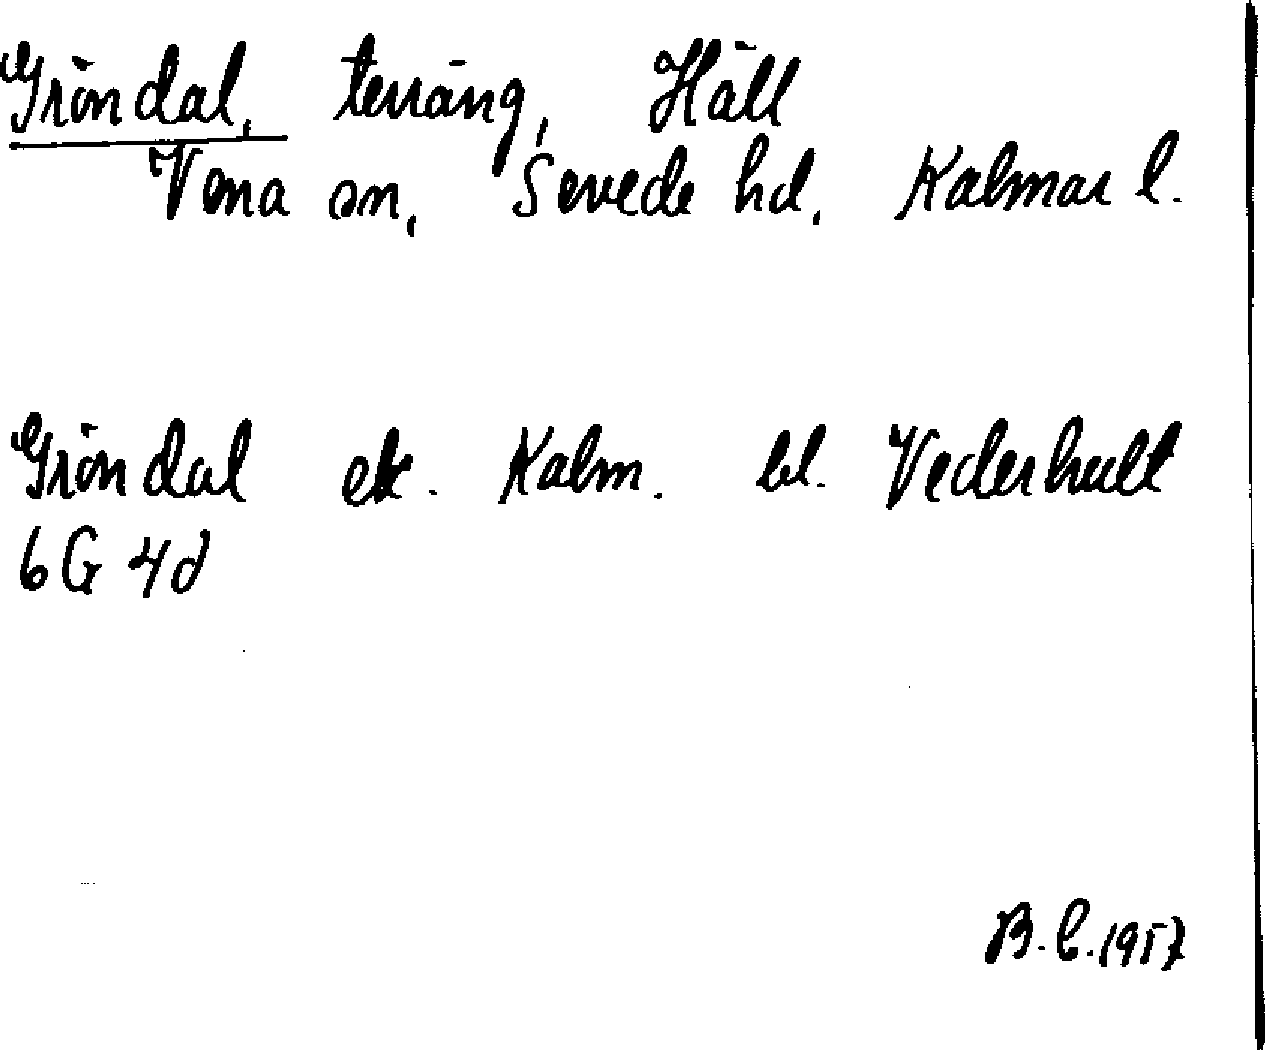 Gröndal, terräng, Häll
Vena sn, Sevede hd, Kalmar l.
Gröndal ek. Kalm. bl. Vederhult
6G 4d
B.C. 1957